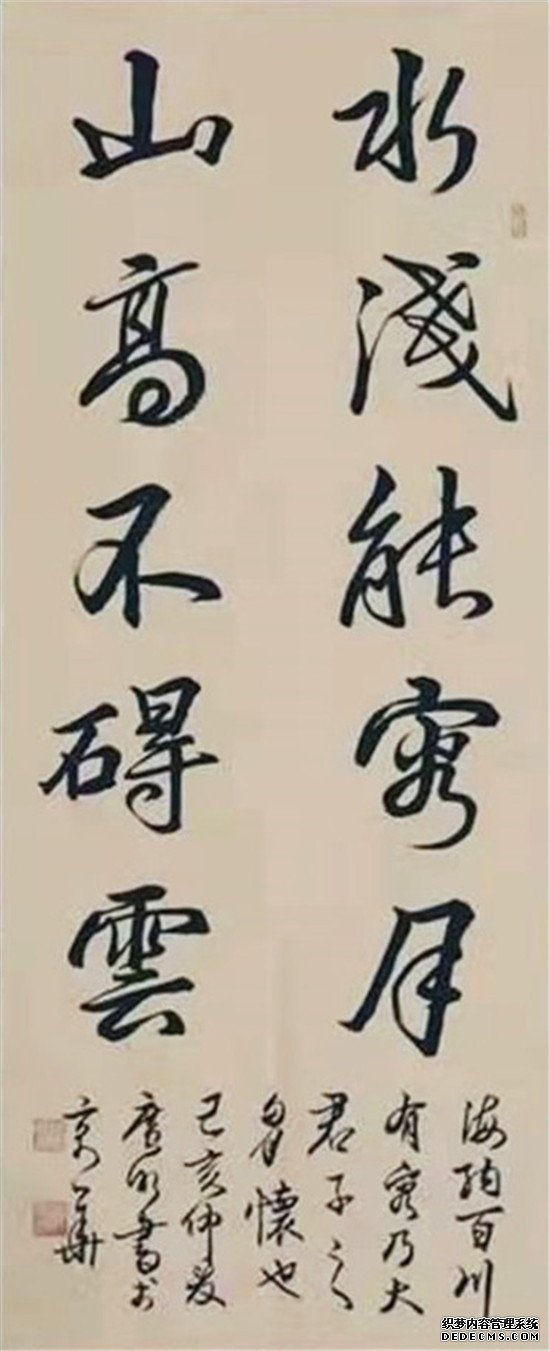 水淺能容月
山高不碍雲
海納百川
有容乃大
君子之
胸懷也
己亥仲夏
書於
京華
织梦内容管理系统
DEDECMS.COM